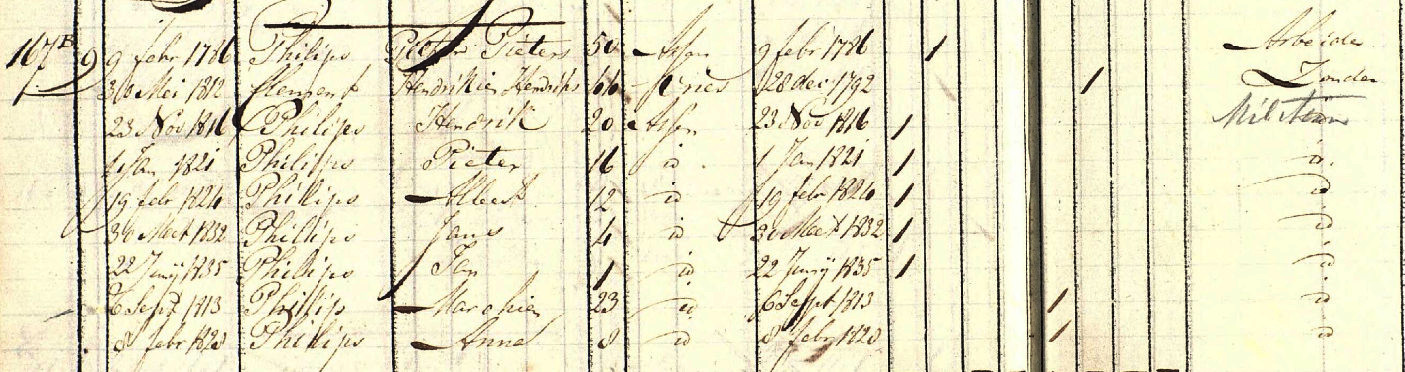 167 B 9 9 febr 1786 Philips Pieter Pieters 50 Assen 9 febr 1786 / Arbeider
30 Mei 1812 Clement Hendrikien Hendriks Vries 28 dec 1792 / Zonder
23 Nov 1816 Philips Hendrik 20 Assen 23 Nov 1816 /
1 Jan 1821 Philips Pieter 16 id 1 Jan 1821 / id
19 febr 1824 Philips Albert 12 id 19 febr 1824 / id
30 Maart 1832 Philips Jans 4 id 30 Maart 1832 / id
22 Junij 1835 Philips Jan 1 id 22 Junij 1835 / id
6 Sept 1813 Philips Marchien 23 id 6 Sept 1813 / id
8 febr 1828 Philips Anna 8 id 8 febr 1828 / id